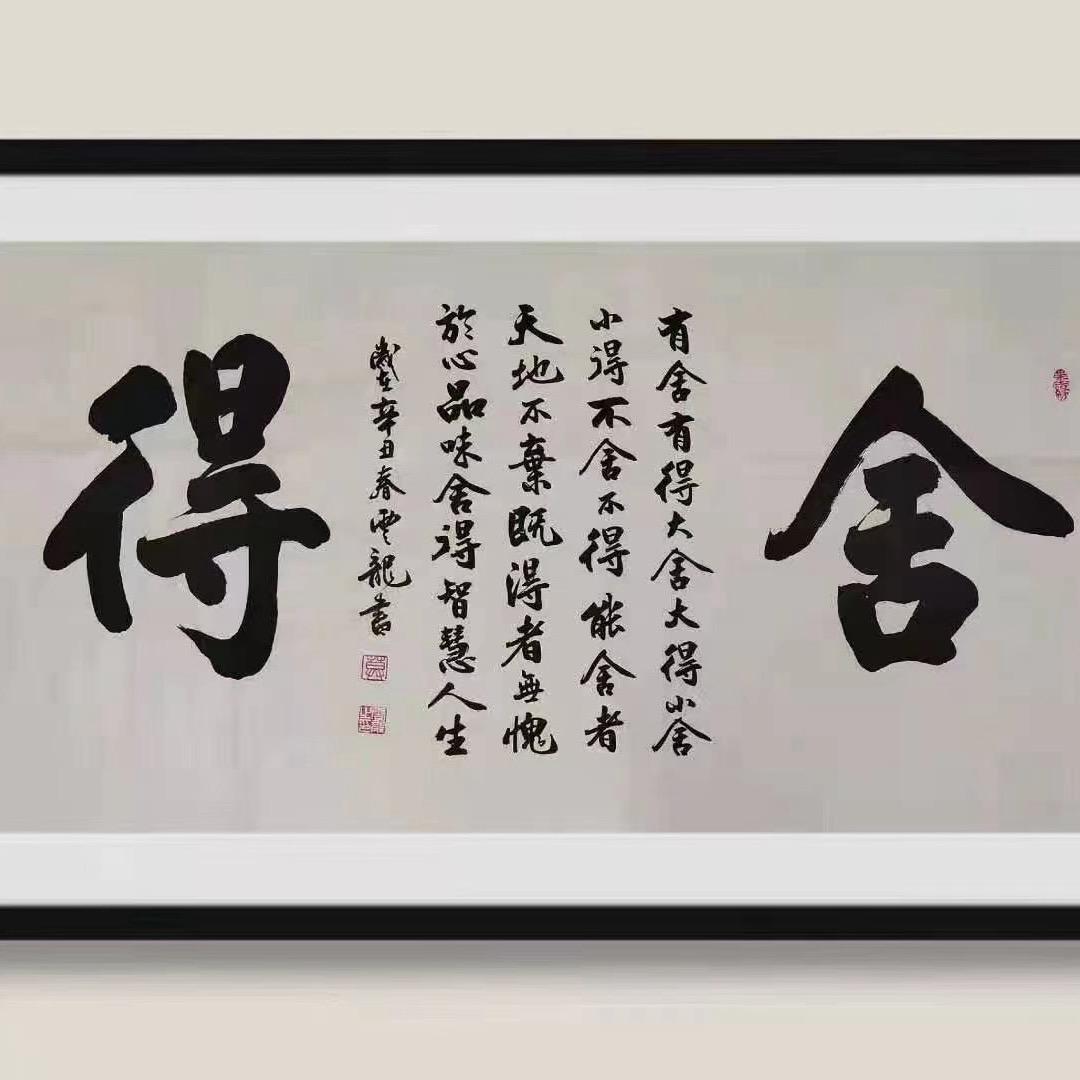 舍
有舍有得大舍大得小舍
小得不舍不得能舍者
天地不棄既得者無愧
於心品味舍得智慧人生
歲在辛丑春雲龍書
得